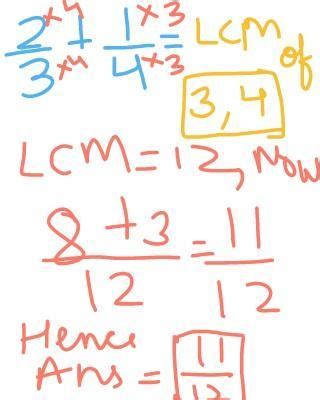 2×4/3×4 + 1×3/4×3 = LCM of
3, 4
LCM = 12, Now
8 + 3/12 = 11/12
Hence
Ans = 11/12